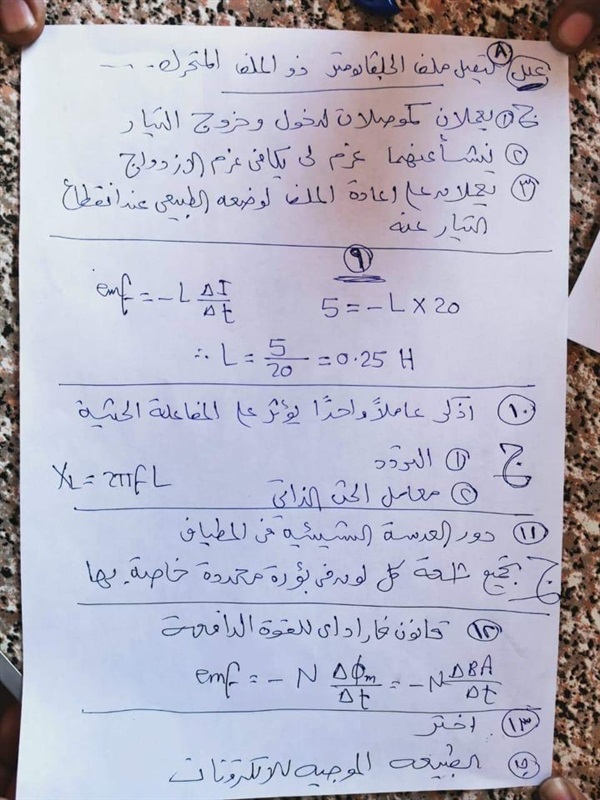 ٨ علل يتصل ملف الجلفانومتر ذو الملف المتحرك ....
ج ① يعملان كموصلات لدخول وخروج التيار
② ينشأ عنهما عزم لى يكافئ عزم الازدواج
③ يعملان على اعادة الملف لوضعه الطبيعى عند انقطاع
التيار عنه
٩
emf = -L ΔI/Δt 5 = -L × 20
∴ L = 5/20 = 0.25 H
١٠ اذكر عاملاً واحدًا يؤثر على المفاعلة الحثية
ج ① التردد
② معامل الحث الذاتى XL = 2πfL
١١ دور العدسة الشيئية فى المطياف
ج تجميع اشعة كل لون فى بؤرة محددة خاصة بها
١٢ قانون فاراداى للقوة الدافعة
emf = - N Δϕm/Δt = -N ΔBA/Δt
١٣ اختر
الطبيعه الموجيه للالكترونات